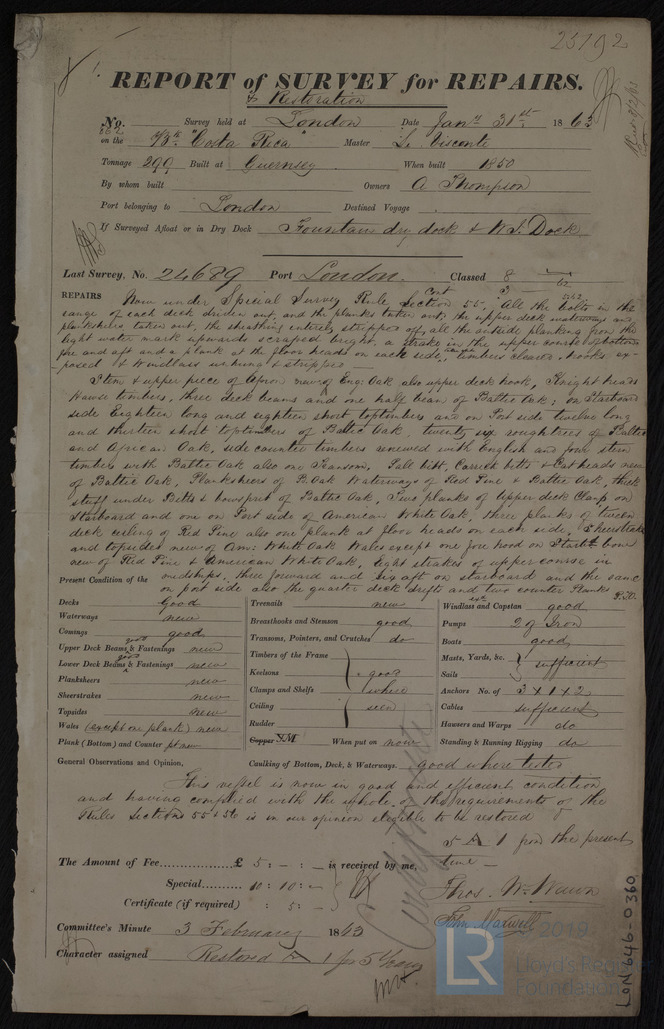 25192
REPORT of SURVEY for REPAIRS.
& Restoration
No. Survey held at London Date Jany 31st 1863
on the Bk "Costa Rica" Master Le Visconte
Tonnage 299 Built at Guernsey When built 1850
By whom built Owners A Thompson
Port belonging to London Destined Voyage
If Surveyed Afloat or in Dry Dock Fountain dry dock & W.I. Dock
Last Survey, No. 24689 Port London. Classed 8
REPAIRS Now under Special Survey Rule Section 55. All the bolts in the
range of each deck driven out, and the planks taken out; the upper deck waterways and
plansheers taken out, the sheathing entirely stripped off, all the outside planking from the
light water mark upwards scraped bright, a strake in the upper course of bottom
fore and aft and a plank at the floor heads on each side, timbers cleared, hooks ex-
-posed & Windlass unhung & stripped —
Stem & upper piece of Apron new of Eng: Oak also upper deck hook, Knight heads
Hawse timbers, three deck beams and one half beam of Baltic Oak; on Starboard
side Eighteen long and eighteen short toptimbers and on Port side twelve long
and thirteen short toptimbers of Baltic Oak, twenty six roughtrees of Baltic
and African Oak, side counter timbers renewed with English and four stern
timbers with Baltic Oak also one Transom, Pall bitt, Carrick bitts & Catheads new
of Baltic Oak, Planksheers of B. Oak Waterways of Red Pine & Baltic Oak, thick
stuff under Bitts & bowsprit of Baltic Oak, Two planks of Upper deck Clamp on
Starboard and one on Port side of American White Oak, three planks of tween
deck ceiling of Red Pine also one plank at floor heads on each side, Sheerstrakes
and topsides new of Am: White Oak Wales except one fore hood on Starbd bow
new of Red Pine & American White Oak, eight strakes of upper course in
midships, three forward and six aft on starboard and the same
on port side also the quarter deck drifts and two counter Planks P.T.O.
Present Condition of the
Decks Good
Waterways new
Comings good
Upper Deck Beams good & Fastenings new
Lower Deck Beams good & Fastenings new
Planksheers new
Sheerstrakes new
Topsides new
Wales (except one plank) new
Plank (Bottom) and Counter pt new
Treenails new
Breasthooks and Stemson good
Transoms, Pointers, and Crutches do
Timbers of the Frame
Keelsons good
Clamps and Shelfs where
Ceiling seen
Rudder
Copper Y.M. When put on now
Windlass and Capstan good
Pumps 2 of Iron
Boats good
Masts, Yards, &c. sufficient
Sails
Anchors No. of 3 x 1 x 2
Cables sufficient
Hawsers and Warps do
Standing & Running Rigging do
General Observations and Opinion, Caulking of Bottom, Deck, & Waterways good where tested
This vessel is now in good and efficient condition
and having complied with the whole of the requirements of the
Rules Sections 55 & 56 is in our opinion eligible to be restored
5 A 1 from the present
time —
The Amount of Fee £ 5 : – : – is received by me,
Special 10 : 10 : –
Certificate (if required) : 5 : –
Thos. Wm Wawn
John Maxwell
Committee's Minute 3 February 1863
Character assigned Restored A 1 for 5 Years
LR
© 2019
Lloyd's Register
Foundation
LON 646-0360